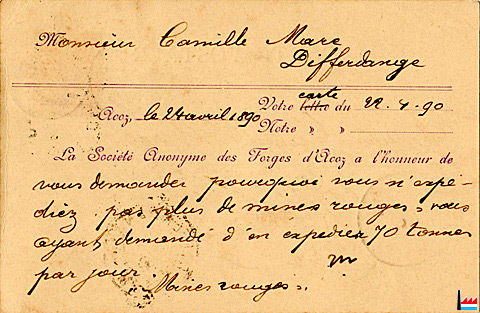 Monsieur Camille Marc
Differdange
carte
Votre lettre du 22-4-90
Acoz, le 24 avril 1890
Notre » »
La Société Anonyme des Forges d'Acoz a l'honneur de
vous demander pourquoi vous n'expé-
diez pas plus de mines rouges, vous
ayant demandé d'en expédier 70 tonnes
par jour
Mines rouges.